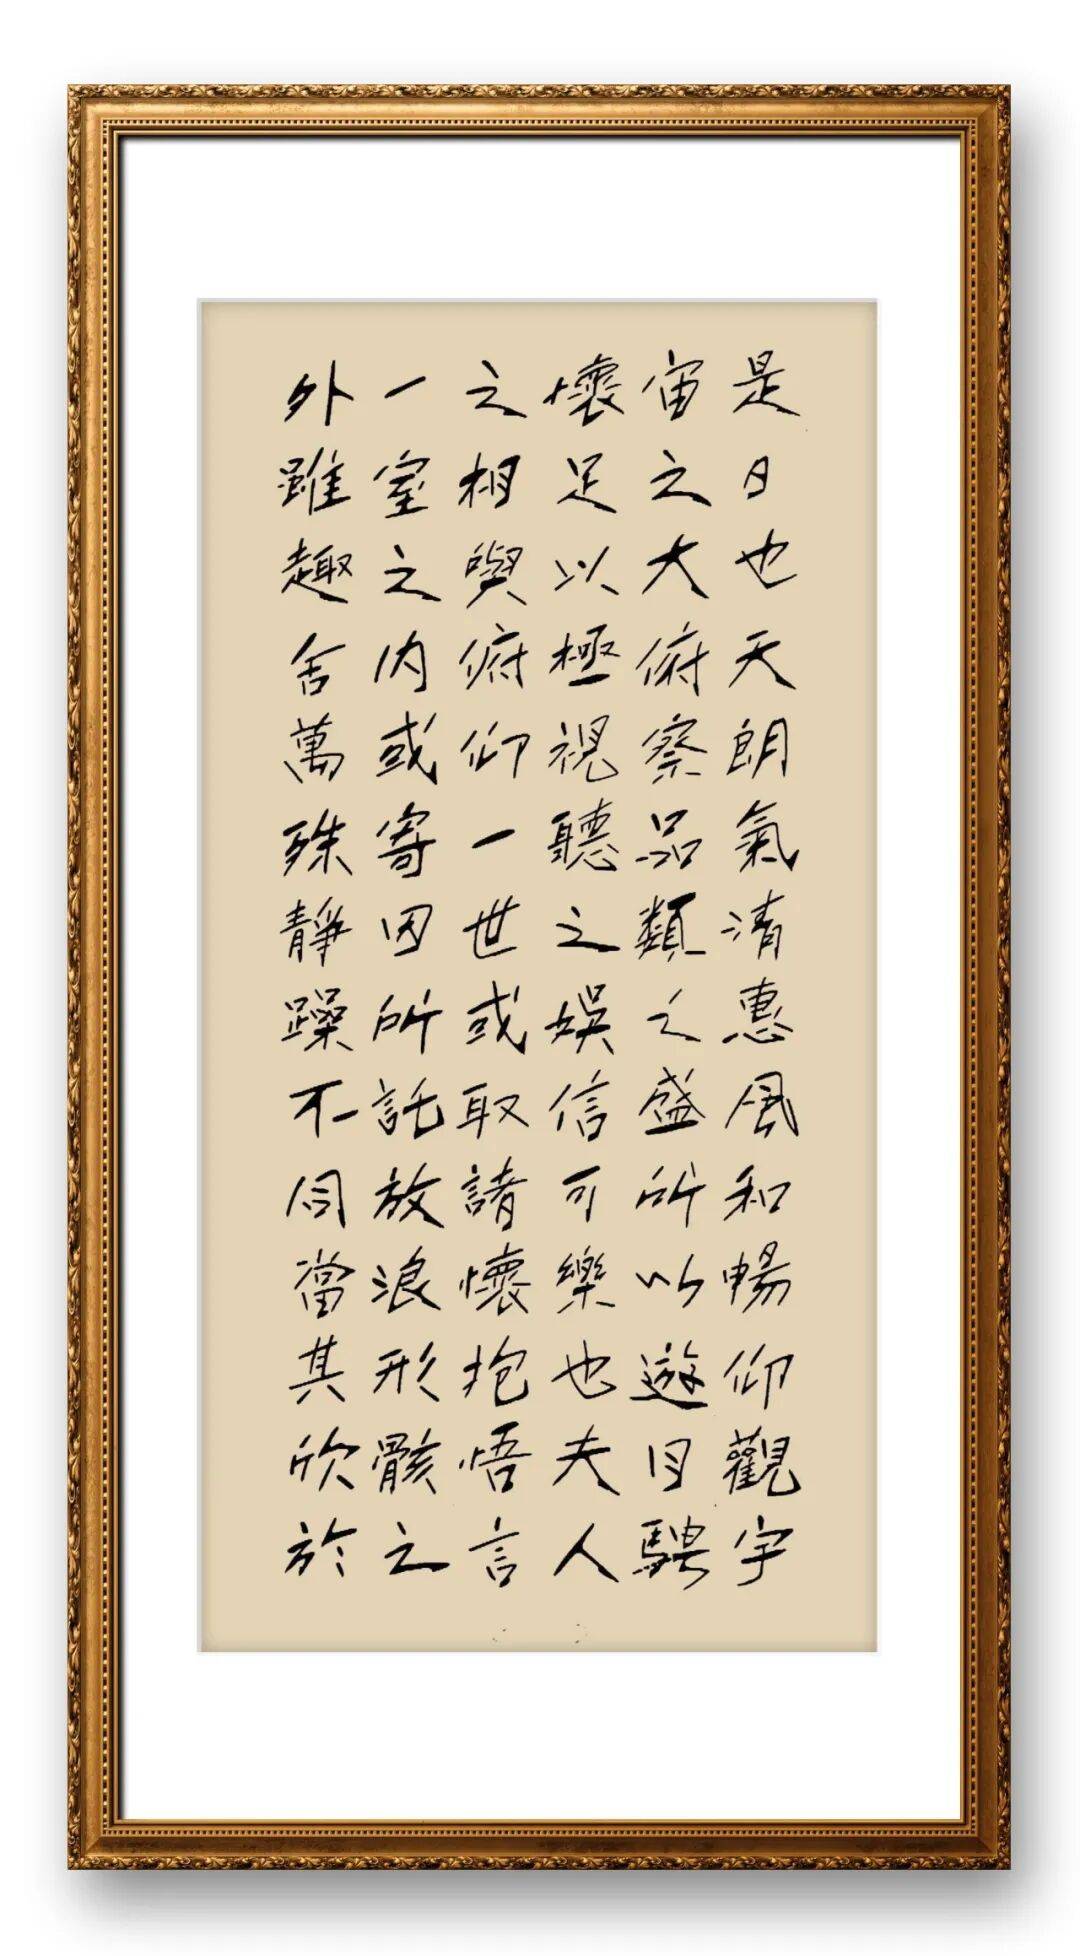 是日也天朗氣清惠風和暢仰觀宇
宙之大俯察品類之盛所以遊目騁
懷足以極視聽之娛信可樂也夫人
之相與俯仰一世或取諸懷抱悟言
一室之内或寄因所託放浪形骸之
外雖趣舍萬殊靜躁不同當其欣於